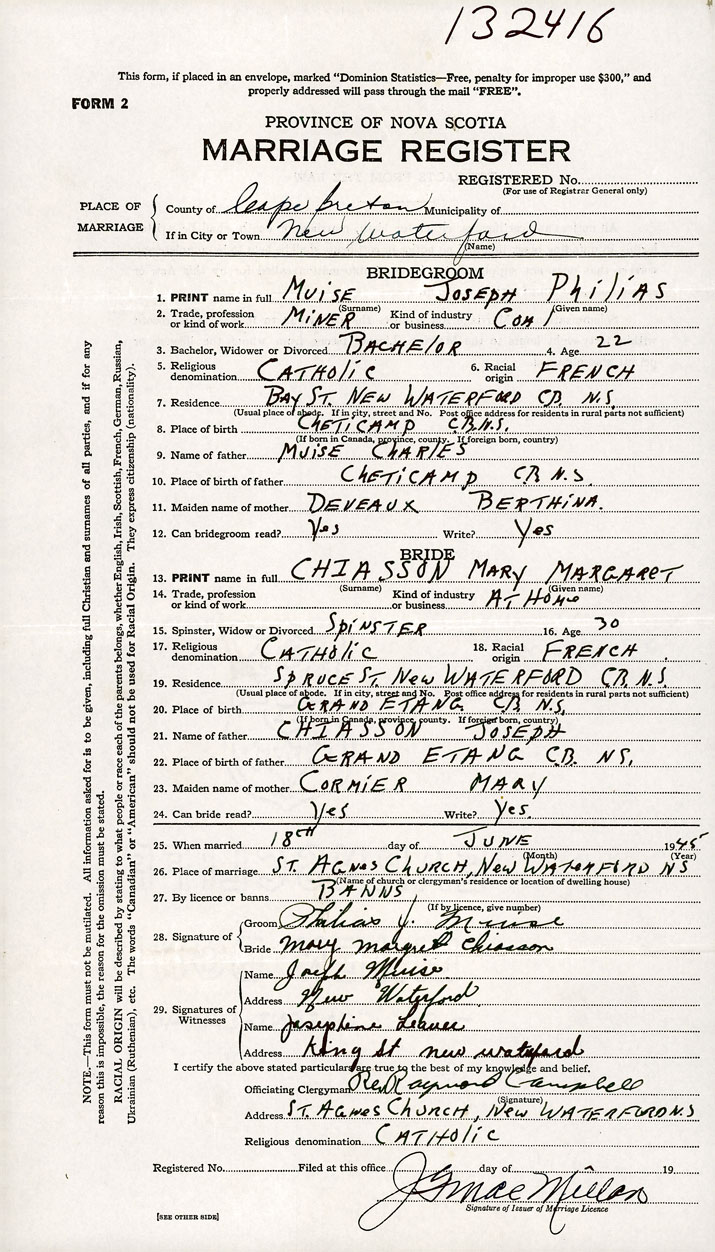 132416
This form, if placed in an envelope, marked "Dominion Statistics—Free, penalty for improper use $300," and
properly addressed will pass through the mail "FREE".
FORM 2
PROVINCE OF NOVA SCOTIA
MARRIAGE REGISTER
REGISTERED No.
(For use of Registrar General only)
PLACE OF MARRIAGE
County of Cape Breton Municipality of
If in City or Town New Waterford
(Name)
BRIDEGROOM
1. PRINT name in full MUISE JOSEPH PHILIAS
(Surname) (Given name)
2. Trade, profession or kind of work MINER Kind of industry or business COAL
3. Bachelor, Widower or Divorced BACHELOR 4. Age 22
5. Religious denomination CATHOLIC 6. Racial origin FRENCH
7. Residence BAY ST. NEW WATERFORD C.B. N.S.
(Usual place of abode. If in city, street and No. Post office address for residents in rural parts not sufficient)
8. Place of birth CHETICAMP C.B.N.S.
(If born in Canada, province, county. If foreign born, country)
9. Name of father MUISE CHARLES
10. Place of birth of father CHETICAMP C.B. N.S.
11. Maiden name of mother DEVEAUX BERTHINA.
12. Can bridegroom read? Yes Write? Yes
BRIDE
13. PRINT name in full CHIASSON MARY MARGARET
(Surname) (Given name)
14. Trade, profession or kind of work Kind of industry or business AT HOME
15. Spinster, Widow or Divorced SPINSTER 16. Age 30
17. Religious denomination CATHOLIC 18. Racial origin FRENCH
19. Residence SPRUCE ST. NEW WATERFORD C.B. N.S.
(Usual place of abode. If in city, street and No. Post office address for residents in rural parts not sufficient)
20. Place of birth GRAND ETANG C.B. N.S.
(If born in Canada, province, county. If foreign born, country)
21. Name of father CHIASSON JOSEPH
22. Place of birth of father GRAND ETANG C.B. N.S.
23. Maiden name of mother CORMIER MARY
24. Can bride read? Yes Write? Yes.
25. When married 18TH day of JUNE 1945
(Month) (Year)
26. Place of marriage ST. AGNES CHURCH, NEW WATERFORD NS
(Name of church or clergyman's residence or location of dwelling house)
27. By licence or banns BANNS
(If by licence, give number)
28. Signature of
Groom Philias J. Muise
Bride Mary Margret Chiasson
29. Signatures of Witnesses
Name Joseph Muise
Address New Waterford
Name Josephine
Address King St new waterford
I certify the above stated particulars are true to the best of my knowledge and belief.
Officiating Clergyman Rev Raymond Campbell
(Signature)
Address ST. AGNES CHURCH, NEW WATERFORD N.S
Religious denomination CATHOLIC
Registered No. Filed at this office day of 19
J G MacMillan
Signature of Issuer of Marriage Licence
[SEE OTHER SIDE]
NOTE.—This form must not be mutilated. All information asked for is to be given, including full Christian and surnames of all parties, and if for any
reason this is impossible, the reason for the omission must be stated.
RACIAL ORIGIN will be described by stating to what people or race each of the parents belongs, whether English, Irish, Scottish, French, German, Russian,
Ukrainian (Ruthenian), etc. The words "Canadian" or "American" should not be used for Racial Origin. They express citizenship (nationality).